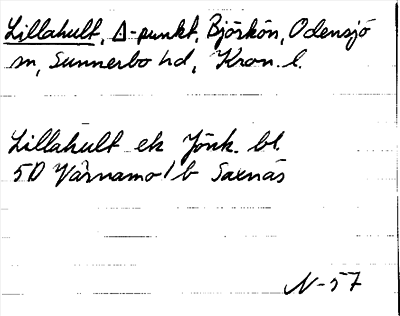 Lillahult, Δ-punkt, Björkön, Odensjö
sn, Sunnerbo hd, Kron. l.
Lillahult ek Jönk. bl.
5D Värnamo 1 b Saxnäs
N-57